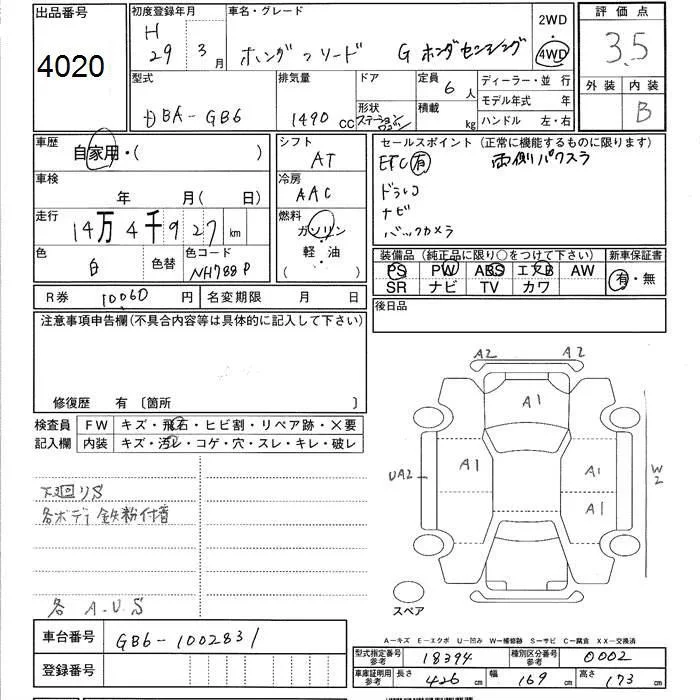 出品番号
4020
初度登録年月
H
29 3月
車名・グレード
ホンダ フリード G ホンダセンシング
2WD
・
4WD
評価点
3.5
外装 内装
B
型式
DBA-GB6
排気量
1490 cc
ドア
形状
ステーションワゴン
定員
6人
積載
kg
ディーラー・並行
モデル年式 年
ハンドル 左・右
車歴
自家用・( )
車検
年 月(日)
走行
14万4千927km
色
白
色替
色コード
NH788P
シフト
AT
冷房
AAC
燃料
ガソリン
・
軽・油
セールスポイント(正常に機能するものに限ります)
ETC 有 両側パワスラ
ドラレコ
ナビ
バックカメラ
装備品(純正品に限り○をつけて下さい)
PS PW ABS エアB AW
SR ナビ TV カワ
新車保証書
有・無
後日品
R券 10060円
名変期限 月 日
注意事項申告欄(不具合内容等は具体的に記入して下さい)
修復歴 有 〔箇所 〕
検査員
記入欄
FW キズ・飛石・ヒビ割・リペア跡・×要
内装 キズ・汚レ・コゲ・穴・スレ・キレ・破レ
下廻りS
各ボディ鉄粉付着
各 A.U.S
A2 A2
A1
UA2 A1 A1 W2
A1
スペア
A-キズ E-エクボ U-凹み W-補修跡 S-サビ C-腐食 XX-交換済
車台番号 GB6-1002831
登録番号
型式指定番号
参考
18394
種別区分番号
参考
0002
車庫証明用
参考
長さ 426cm 幅 169cm 高さ 173cm